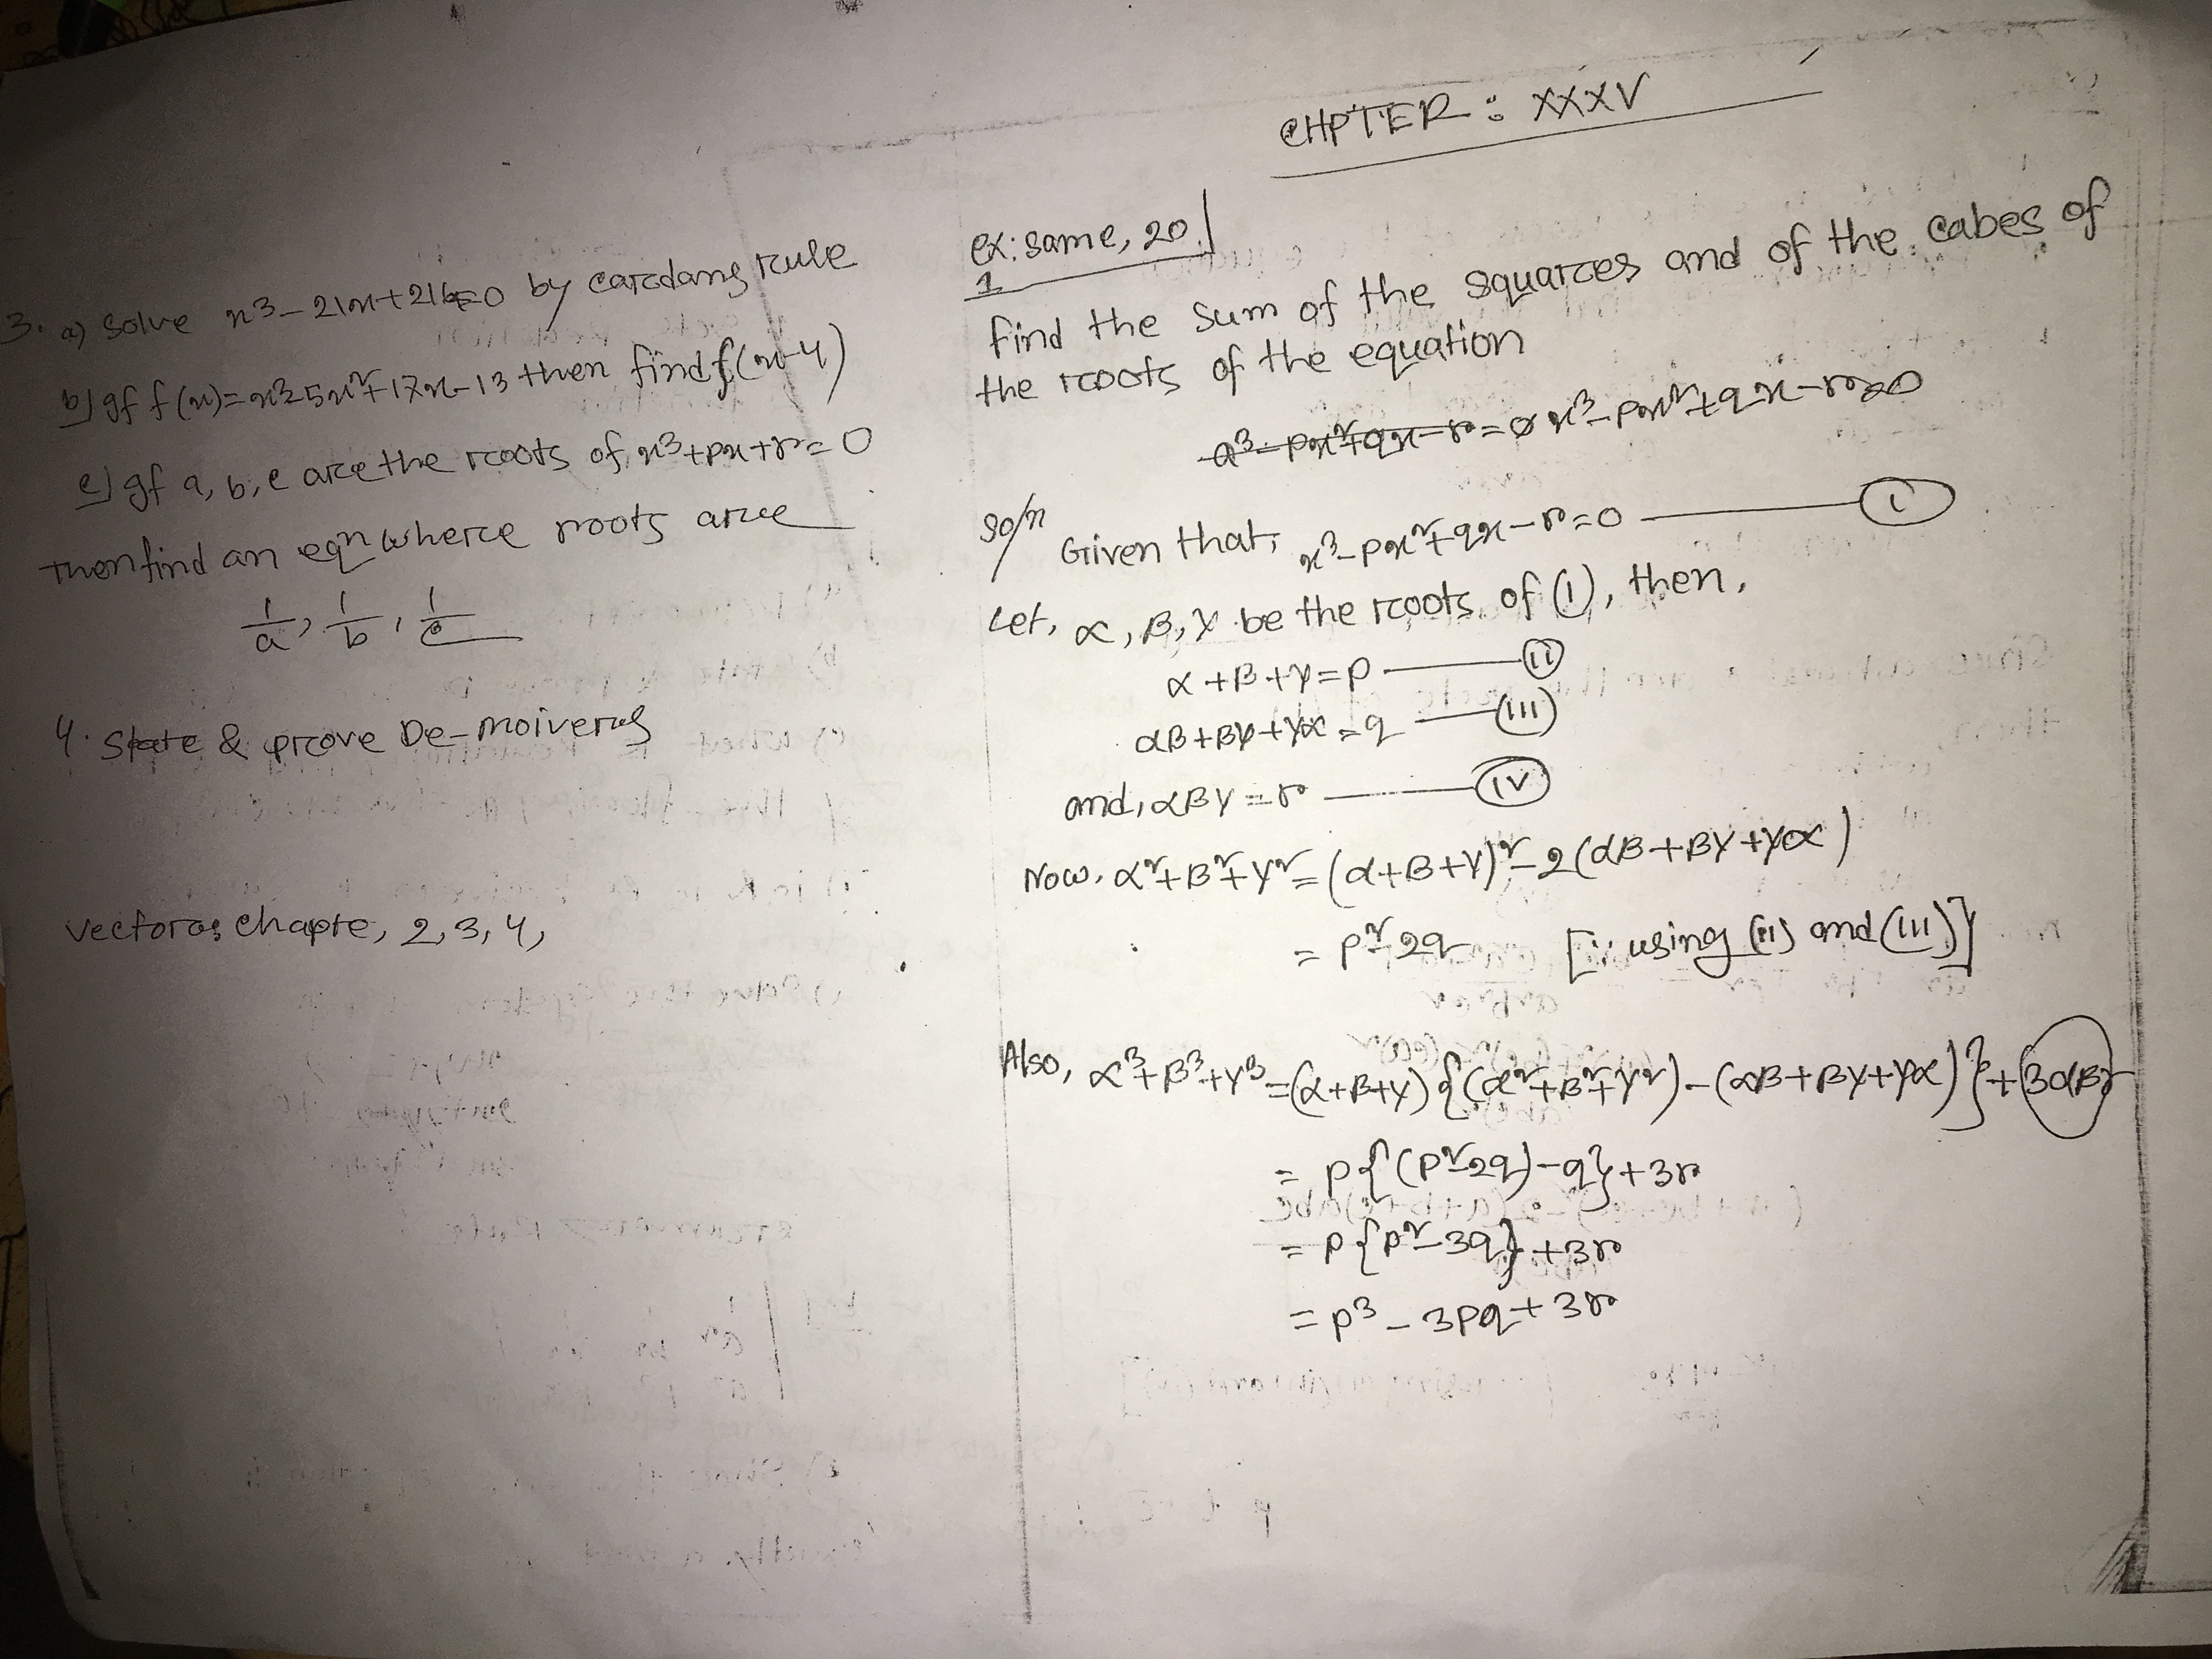 3. a) Solve x³-21x+216=0 by carcdang rcule
b) If f(x)=x³-5x²+17x-13 then find f(x-4)
c) If a, b, c arce the rcoots of x³+px+r=0
then find an eqn wherce roots arce
1/a, 1/b, 1/c
4. State & prcove De-moivercs
vectorcs chapte, 2, 3, 4,
CHPTER : XXXV
ex: same, 20
1
find the sum of the squarces and of the cabes of
the rcoots of the equation
x³-px²+qx-r=0 x³-px²+qx-r=0
Soln Given that, x³-px²+qx-r=0 (I)
Let, α, β, γ be the rcoots of (I), then,
α+β+γ=p (II)
αβ+βγ+γα=q (III)
and, αβγ=r (IV)
Now, α²+β²+γ²=(α+β+γ)²-2(αβ+βγ+γα)
=p²-2q [∵ using (II) and (III)]
Also, α³+β³+γ³=(α+β+γ){(α²+β²+γ²)-(αβ+βγ+γα)}+3αβγ
=p{(p²-2q)-q}+3r
=p{p²-3q}+3r
=p³-3pq+3r